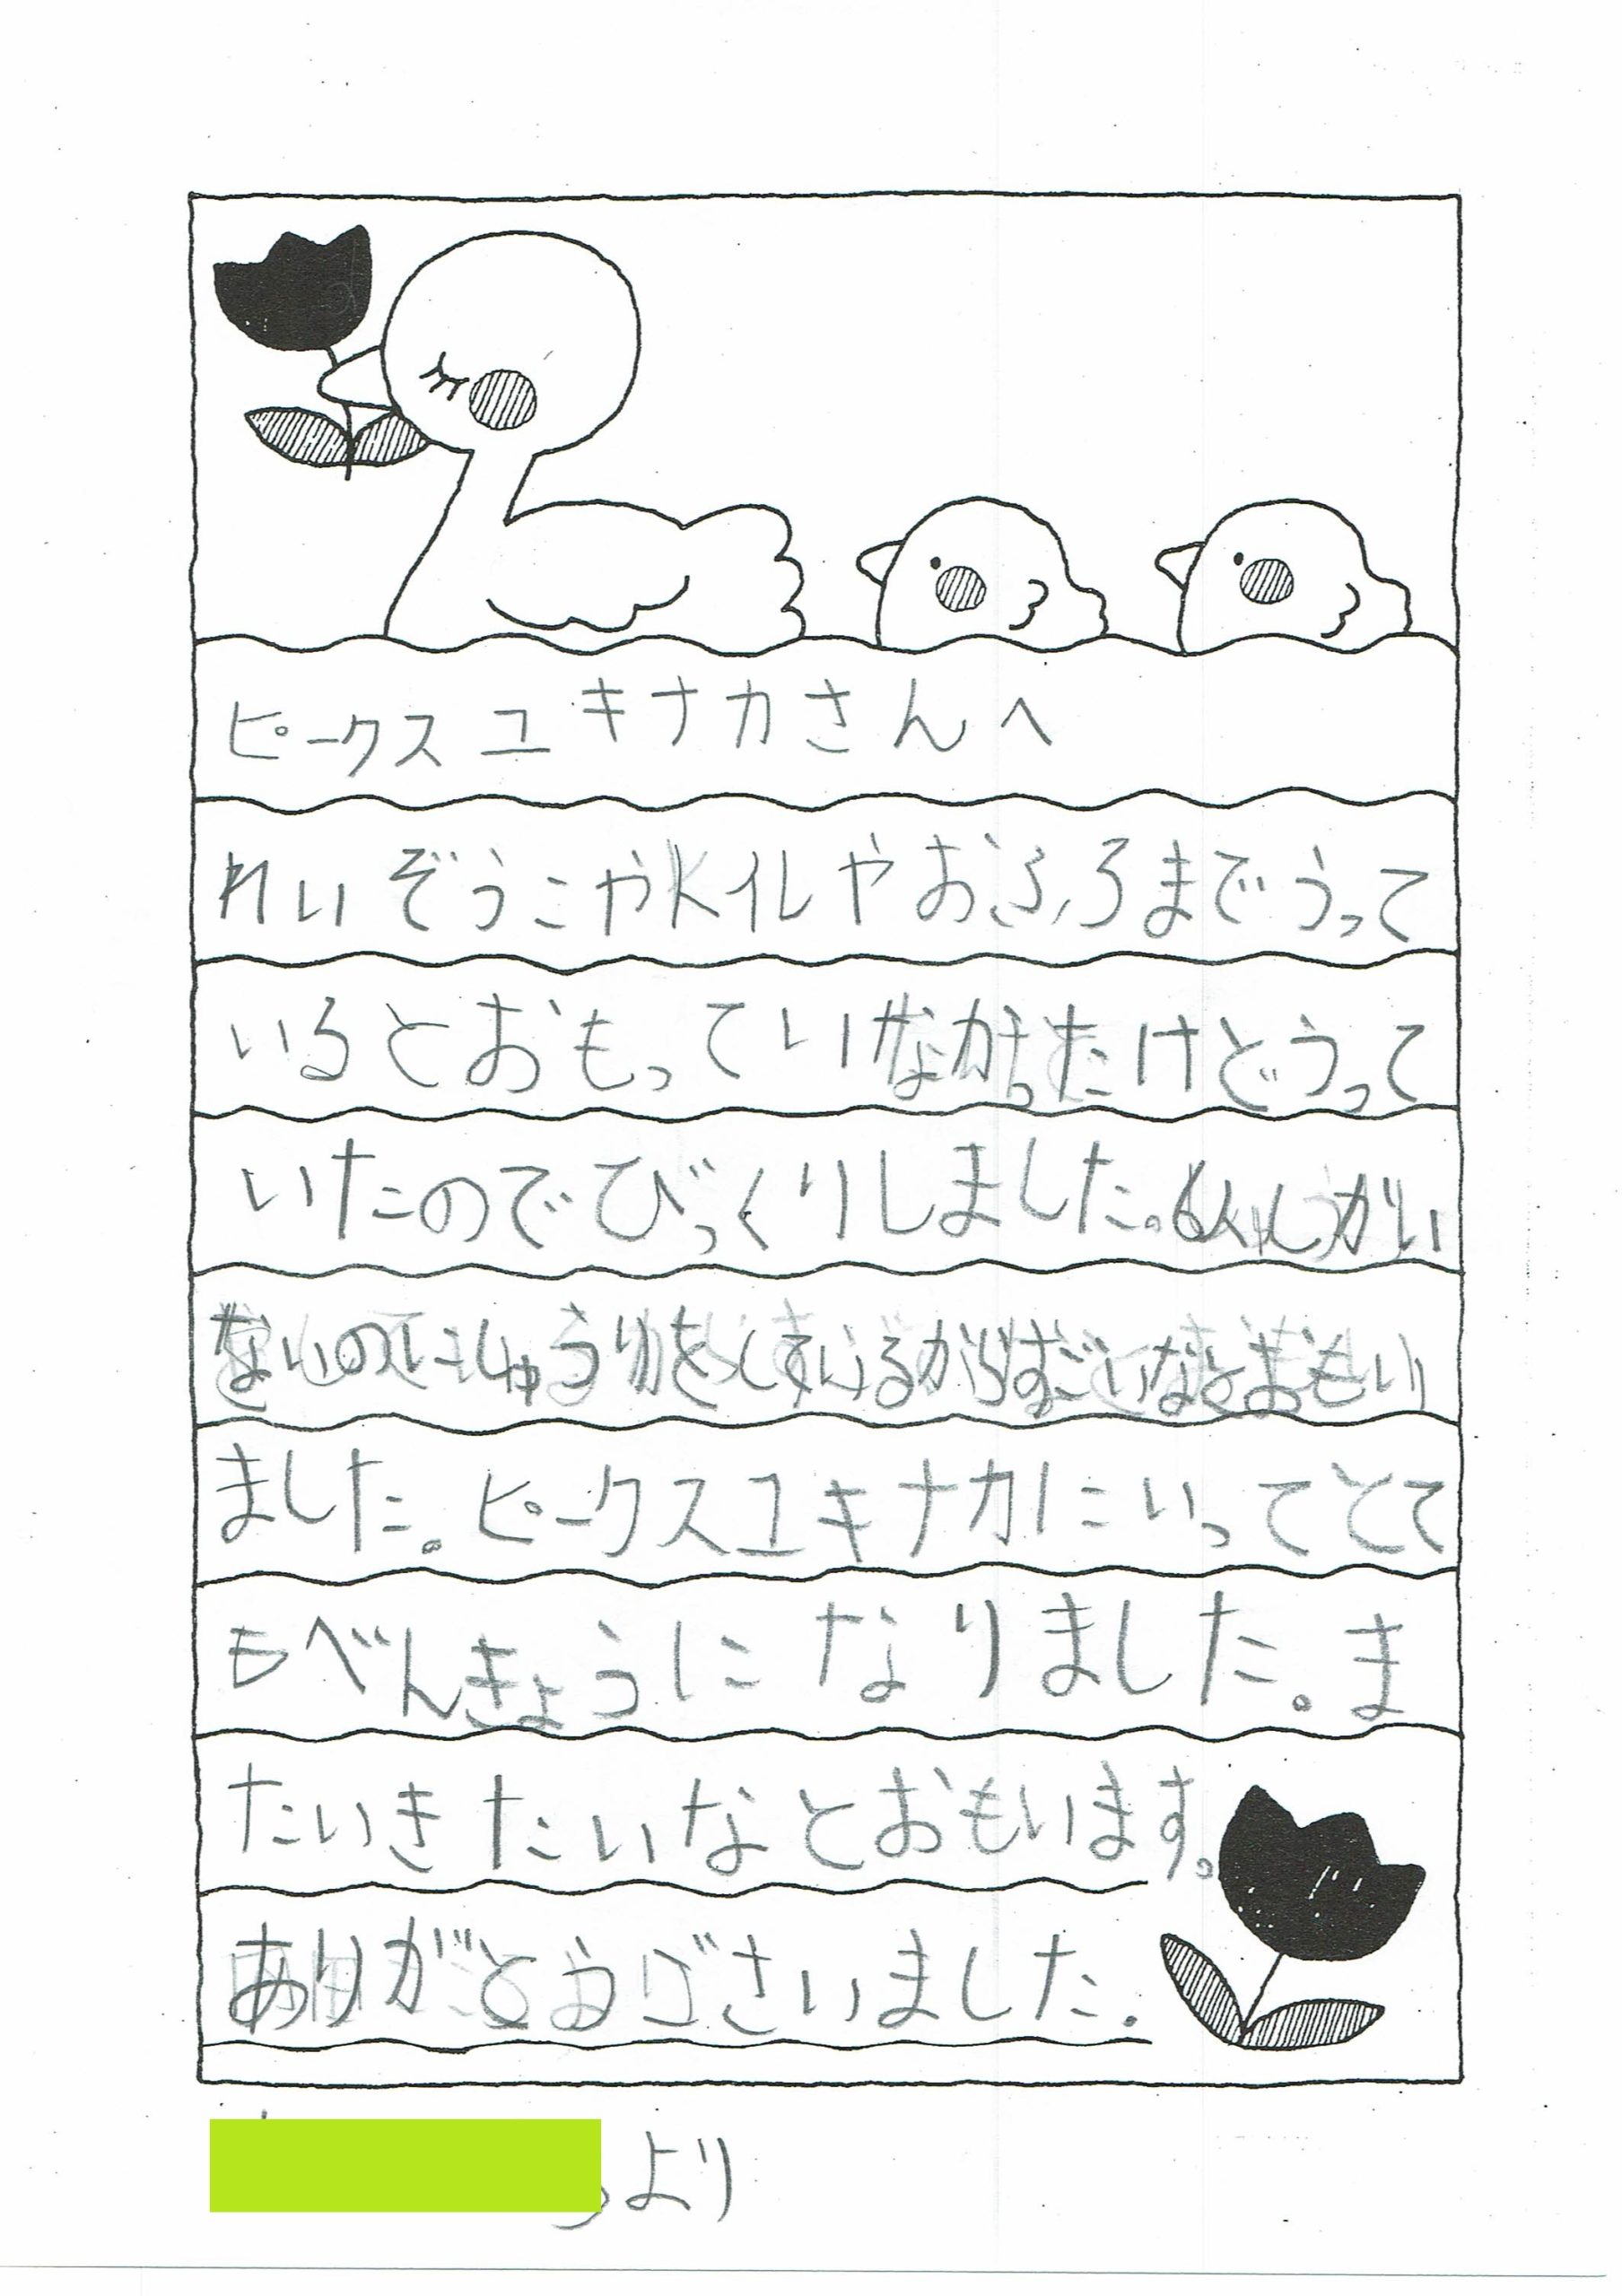 ピークスユキナカさんへ
れいぞうこやトイレやおふろまでうって
いるとおもっていなかったけどうって
いたのでびっくりしました。6人しか
ないのにしゅうりをしているからすごいなとおもい
ました。ピークスユキナカにいってとて
もべんきょうになりました。ま
たいきたいなとおもいます。
ありがとうございました。
より